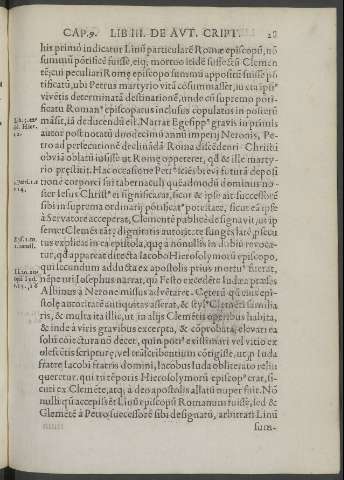 CAP.9. LIB III. DE AVT. CRIPT. 28
his primũ indicatur Linũ particularẽ Romæ episcopũ, nõ
summũ põtificẽ fuisse, eiq; mortuo itidẽ suffectũ Clemen
tẽ; cui peculiari Romę episcopo summũ appositũ fuisse põ
tificatũ, ubi Petrus martyrio vitã cõsummasset, iuxta ipsi⁹
vivẽtis determinatã destinationẽ, unde cũ supremo põti-
ficatu Roman⁹ episcopatus inclusus copulatus in posterũ
mãsit, iã deducendũ est. Narrat Egesipp⁹ gravis in primis
autor post nonatũ duodecimũ anni imperij Neronis, Pe-
tro ad persecutionẽ declinãdã Roma discedenti Christũ
obviã oblatũ iussisse ut Romę oppeteret, qđ & ille marty-
rio præstitit. Hac occasione Petr⁹ sciẽs brevi futurã deposi
tionẽ corporei sui tabernaculi quẽadmodũ dominus no-
ster Iesus Christ⁹ ei significarat, sicut & ipse ait successorẽ
sibi in suprema ordinarij põtificat⁹ potestate, sicut eã ipse
à Servatore acceperat, Clementẽ publicè designavit, ut ip
semet Clemẽs tãtę dignitatis autoritate fungẽs latè psecu
tus explicat in ea epistola, quę à nõnullis in dubiũ revoca-
tur, qđ appareat directa Iacobo Hierosolymorũ episcopo,
qui secundum adducta ex apostolis prius mortu⁹ fuerat,
nẽpe uti Iosephus narrat, qũ Festo excedẽte Iudæa ptæses
Albinus à Nerone missus advẽtaret. Ceterũ qũ eius epi-
stolę autoritatẽ antiquitas asserat, & styl⁹ Clemẽti familia
ris, & multa ita illic, ut in alijs Clemẽtis operibus habita,
& inde à viris gravibus excerpta, & cõprobata, elovari ea
solũ coiectura nõ decet, quin pot⁹ existimari vel vitio ex
olescẽtis scripturę, vel trãscribentium cõtigisse, ut, p Iuda
fratre Iacobi fratris domini, Iacobus Iuda obliterato relist
queretur. qui tũ tẽporis Hierosolymorũ episcop⁹ erat, si-
cuti ex Clemẽte, atq; à deo apostolis allati nuper fuit. Nõ
nulli qũ accepissẽt Linũ episcopũ Romanum fuisse, sed &
Clemẽtẽ à Petro successorẽ sibi designatũ, arbitrati Linũ
sum-